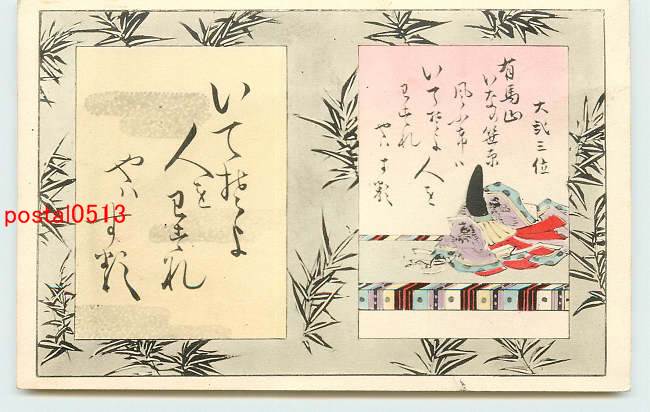 大弐三位
有馬山
いなの笹原
風ふけは
いてそよ人を
わすれ
やはする
いてそよ
人を
わすれ
やはする
postal0513